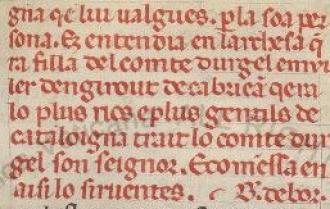 gna qe liu ualgues. p̲la soa per
sona. Ez entendia en larchesa q̃
ra filla del comte durgel emoi
ler dengiraut de cabrieã qera
lo plus ries eplus gentils de
cataloigna trait lo comte dur
gel son seignor. Ecomẽssa en
aisi lo siruentes. B. de bor